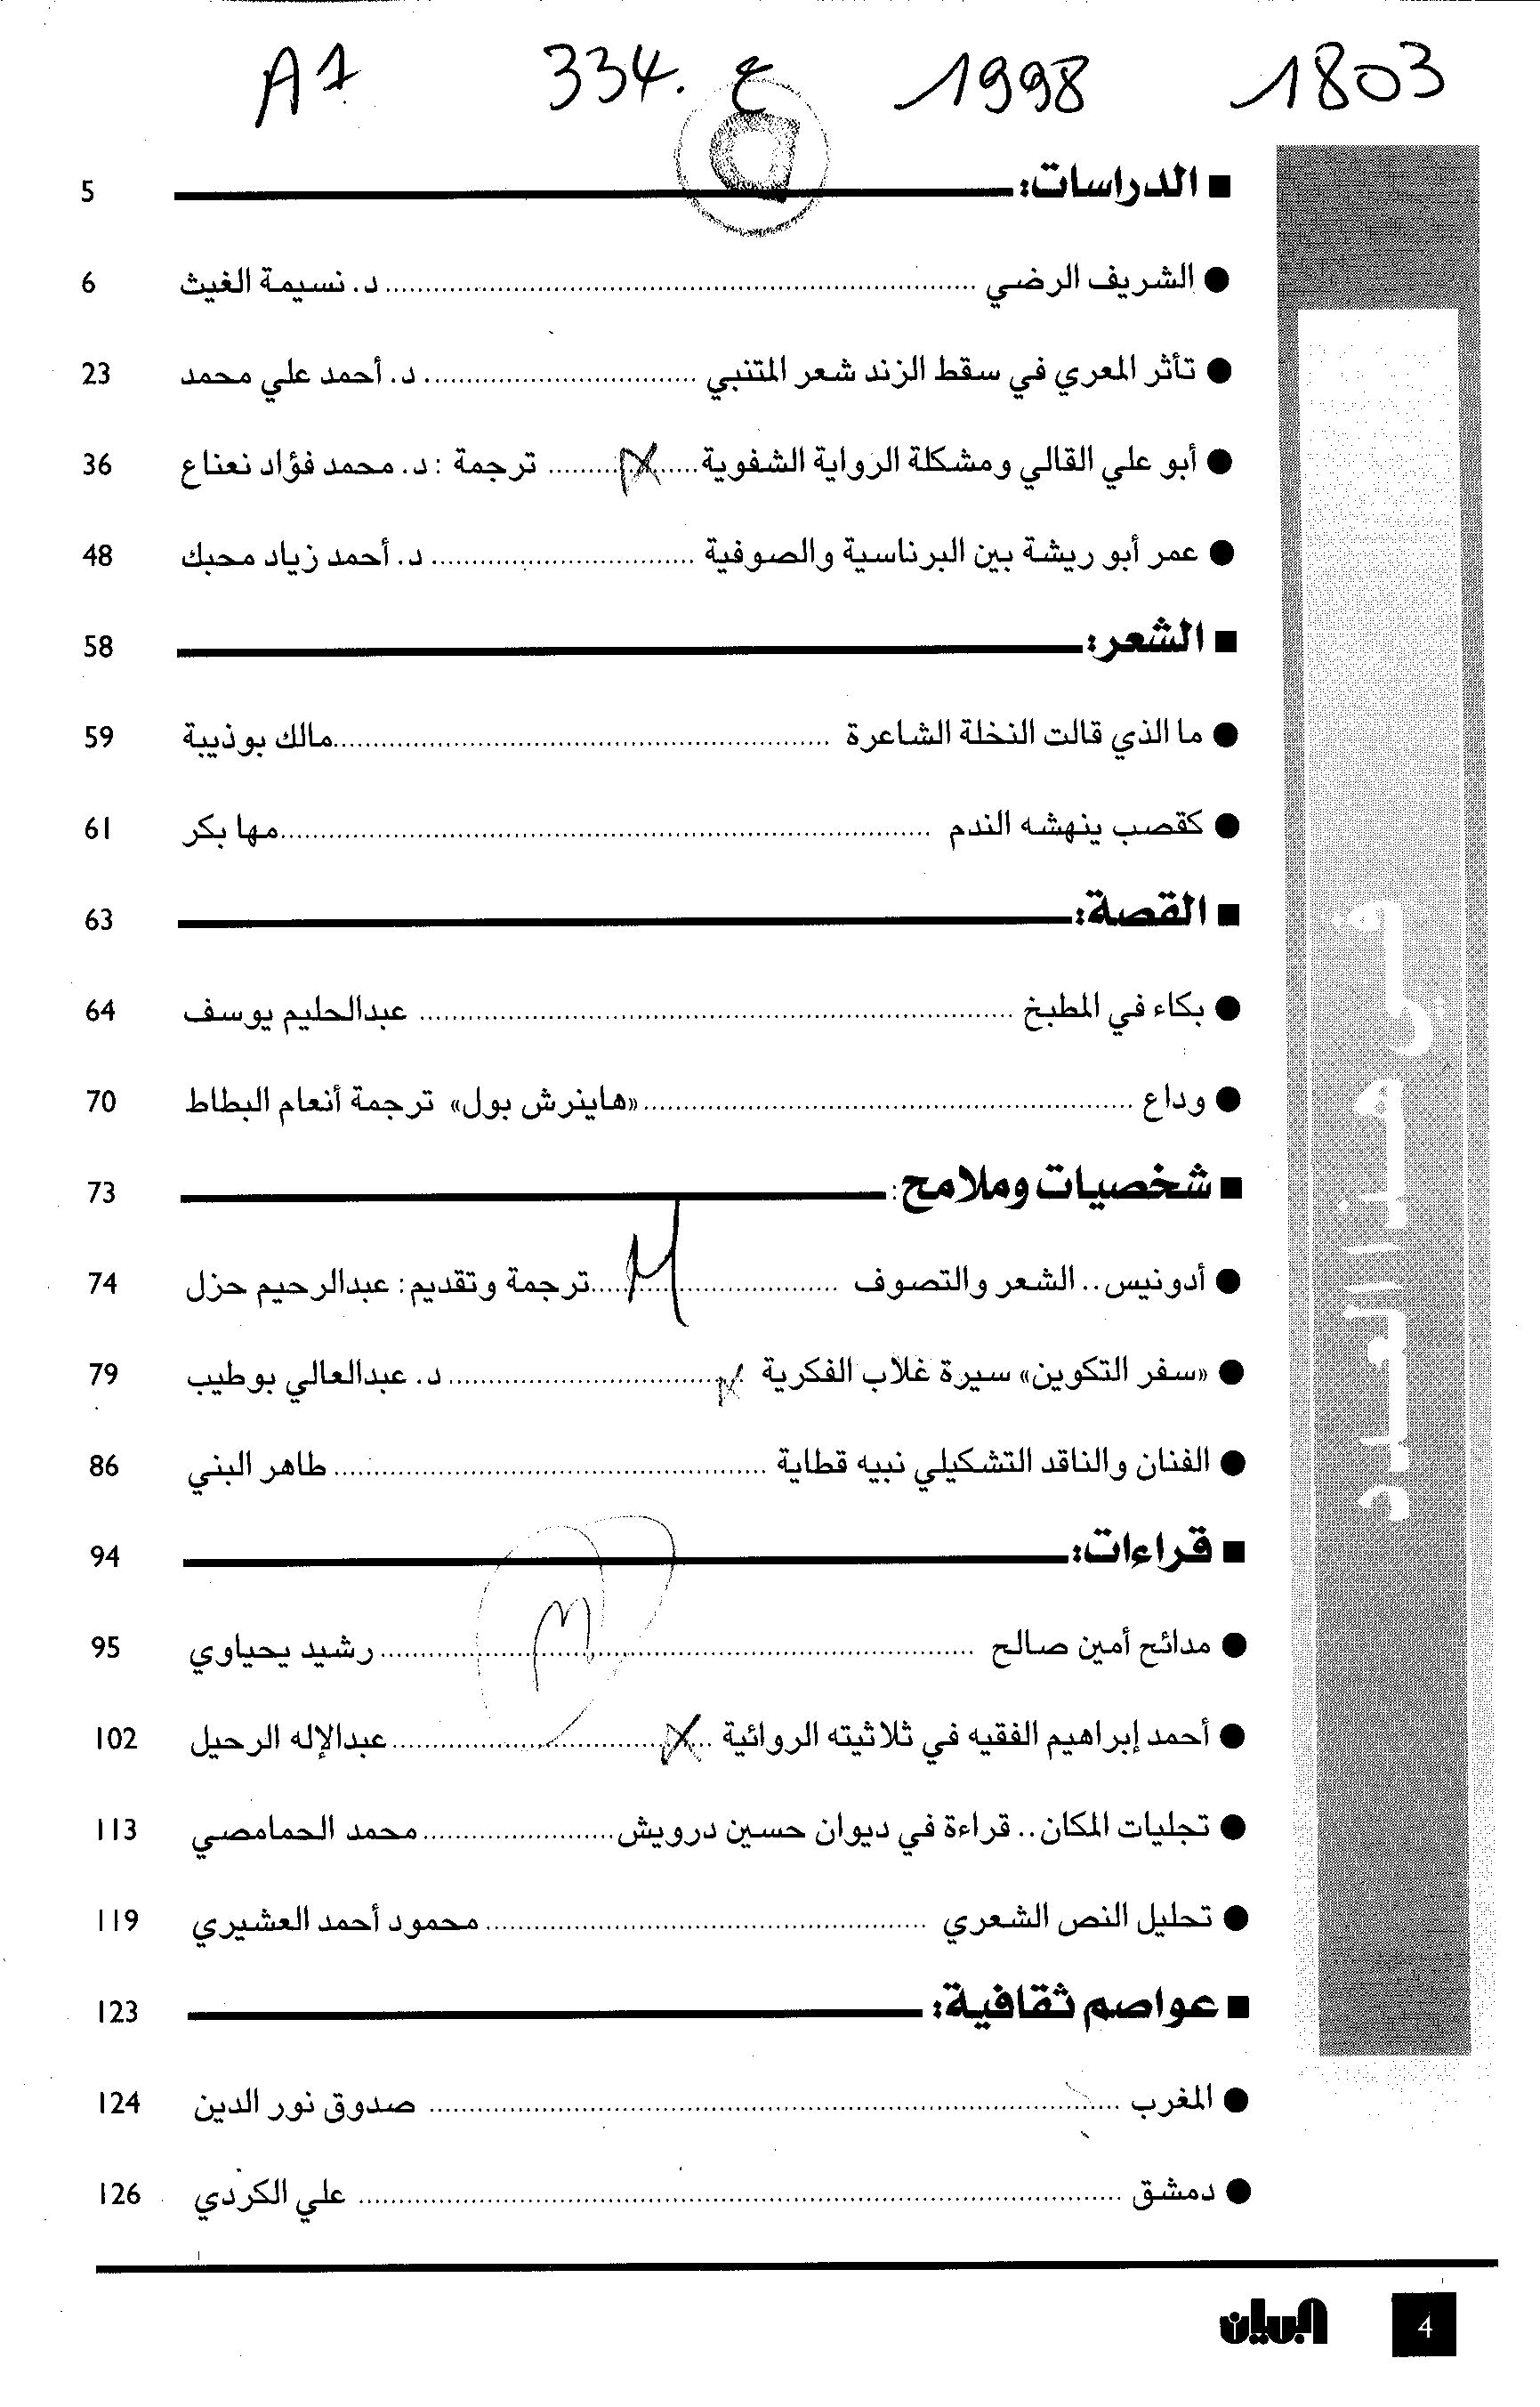 A1 334. ع 1998 1803
■ الدراسات: 5
● الشريف الرضي ........ د. نسيمة الغيث 6
● تأثر المعري في سقط الزند شعر المتنبي ........ د. أحمد علي محمد 23
● أبو علي القالي ومشكلة الرواية الشفوية ........ ترجمة : د. محمد فؤاد نعناع 36
● عمر أبو ريشة بين البرناسية والصوفية ........ د. أحمد زياد محبك 48
■ الشعر: 58
● ما الذي قالت النخلة الشاعرة ........ مالك بوذيبة 59
● كقصب ينهشه الندم ........ مها بكر 61
■ القصة: 63
● بكاء في المطبخ ........ عبدالحليم يوسف 64
● وداع ........ «هاينرش بول» ترجمة أنعام البطاط 70
■ شخصيات وملامح: 73
● أدونيس.. الشعر والتصوف ........ ترجمة وتقديم: عبدالرحيم حزل 74
● «سفر التكوين» سيرة غلاب الفكرية ........ د. عبدالعالي بوطيب 79
● الفنان والناقد التشكيلي نبيه قطاية ........ طاهر البني 86
■ قراءات: 94
● مدائح أمين صالح ........ رشيد يحياوي 95
● أحمد إبراهيم الفقيه في ثلاثيته الروائية ........ عبدالإله الرحيل 102
● تجليات المكان.. قراءة في ديوان حسين درويش ........ محمد الحمامصي 113
● تحليل النص الشعري ........ محمود أحمد العشيري 119
■ عواصم ثقافية: 123
● المغرب ........ صدوق نور الدين 124
● دمشق ........ علي الكردي 126
في هذا العدد
4 البيان